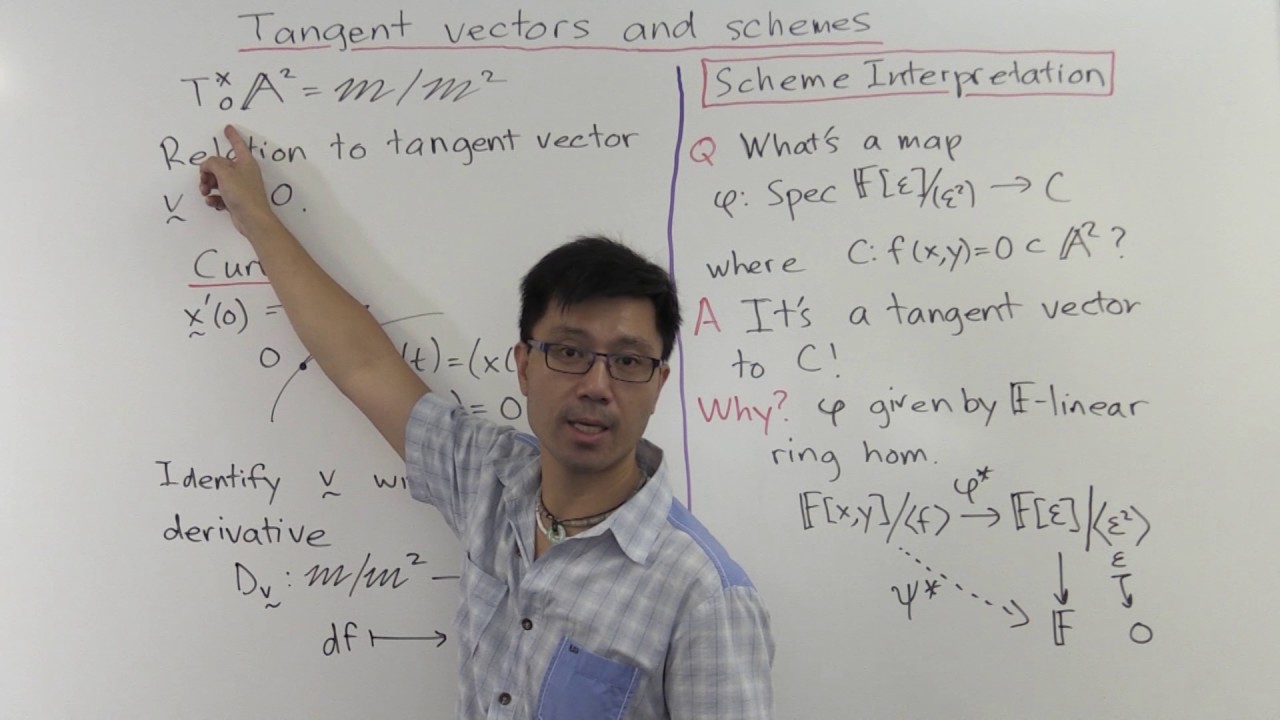 Tangent vectors and schemes
T*₀𝔸² = m/m²
Relation to tangent vector
v 0.
x'(0) =
0
(t)=(x(
)=0
Identify v
derivative
D_v : m/m² –
df ↦
Scheme Interpretation
Q What's a map
φ: Spec 𝔽[ε]/(ε²) → C
where C: f(x,y)=0 ⊂ 𝔸²?
A It's a tangent vector
to C!
Why? φ given by 𝔽-linear
ring hom.
𝔽[x,y]/⟨f⟩ →φ* 𝔽[ε]/⟨ε²⟩
ψ* ↓ ε ↧
𝔽 0